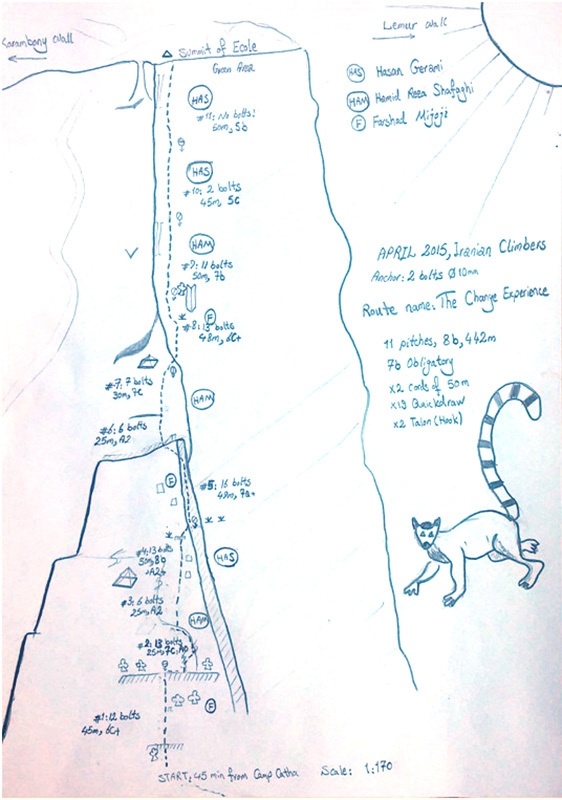 Karambony Wall
Lemur Wall
Summit of Ecole
Green Area
HAS Hasan Gerami
HAM Hamid Reza Shafaghi
F Farshad Mijoji
HAS
#11: No bolts!
50m, 5b
HAS
#10: 2 bolts
45m, 5c
HAM
#9: 11 bolts
50m, 7b
F
#8: 13 bolts
48m, 6c+
#7: 7 bolts
30m, 7c
HAM
#6: 6 bolts
25m, A2
F
#5: 16 bolts
49m, 7a+
#4: 13 bolts
50m, 8b
+A2+
HAS
#3: 6 bolts
25m, A2
HAM
#2: 13 bolts
25m, 7c, A0
#1: 12 bolts
45m, 6c+
F
START: 45 min from Camp Catha
Scale: 1:170
APRIL 2015, Iranian Climbers
Anchor: 2 bolts Ø 10mm
Route name: The Change Experience
11 pitches, 8b, 442m
7b Obligatory
x2 cords of 50m
x19 Quickdraw
x2 Talon (Hook)